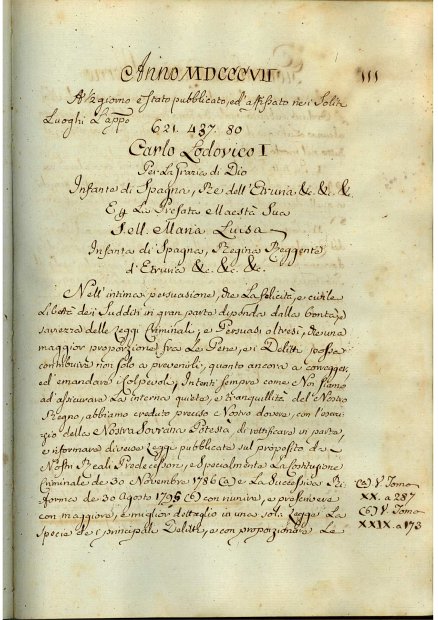 Anno MDCCCVII
111
A 12 giorno è stato pubblicato, ed affissato nei Soliti
Luoghi L'appo
621. 437. 80
Carlo Lodovico I
Per La Grazia di Dio
Infante di Spagna, Re dell'Etruria &c. &c. &c.
E g La Prefata Maestà Sua
Maria Luisa
Infanta di Spagna, Regina Reggente
d'Etruria &c. &c. &c.
Nell'intima persuasione, che La felicità, e civile
Libertà dei Sudditi in gran parte dipenda dalla bontà, e
savezza delle Leggi Criminali, e Persuasi oltresì, che una
maggior proporzione fra Le Pene, e i Delitti possa
contribuire non solo a prevenirli, quanto ancora a corregger,
ed emandare i Colpevoli; Intenti sempre come Noi siamo
ad assicurare La interna quiete, e tranquillità del Nostro
Regno, abbiamo creduto preciso Nostro dovere, con l'eserci-
zio della Nostra Sovrana Potestà di rettificare in parte,
e riformare diverse Legge pubblicate sul proposito da
Nostri Reali Predecessori, e Specialmente La Costituzione
Criminale de 30 Novembre 1786 (a) e La Successiva Ri-
forma de 30 Agosto 1795 (b) con riunire, e prescrivere
con maggiore, e miglior dettaglio in una sola Legge La
Specie de i principali Delitti, e con proporzionare Le
(a) V. Tomo
XX. a 287
(b) V. Tomo
XXIX. a 173